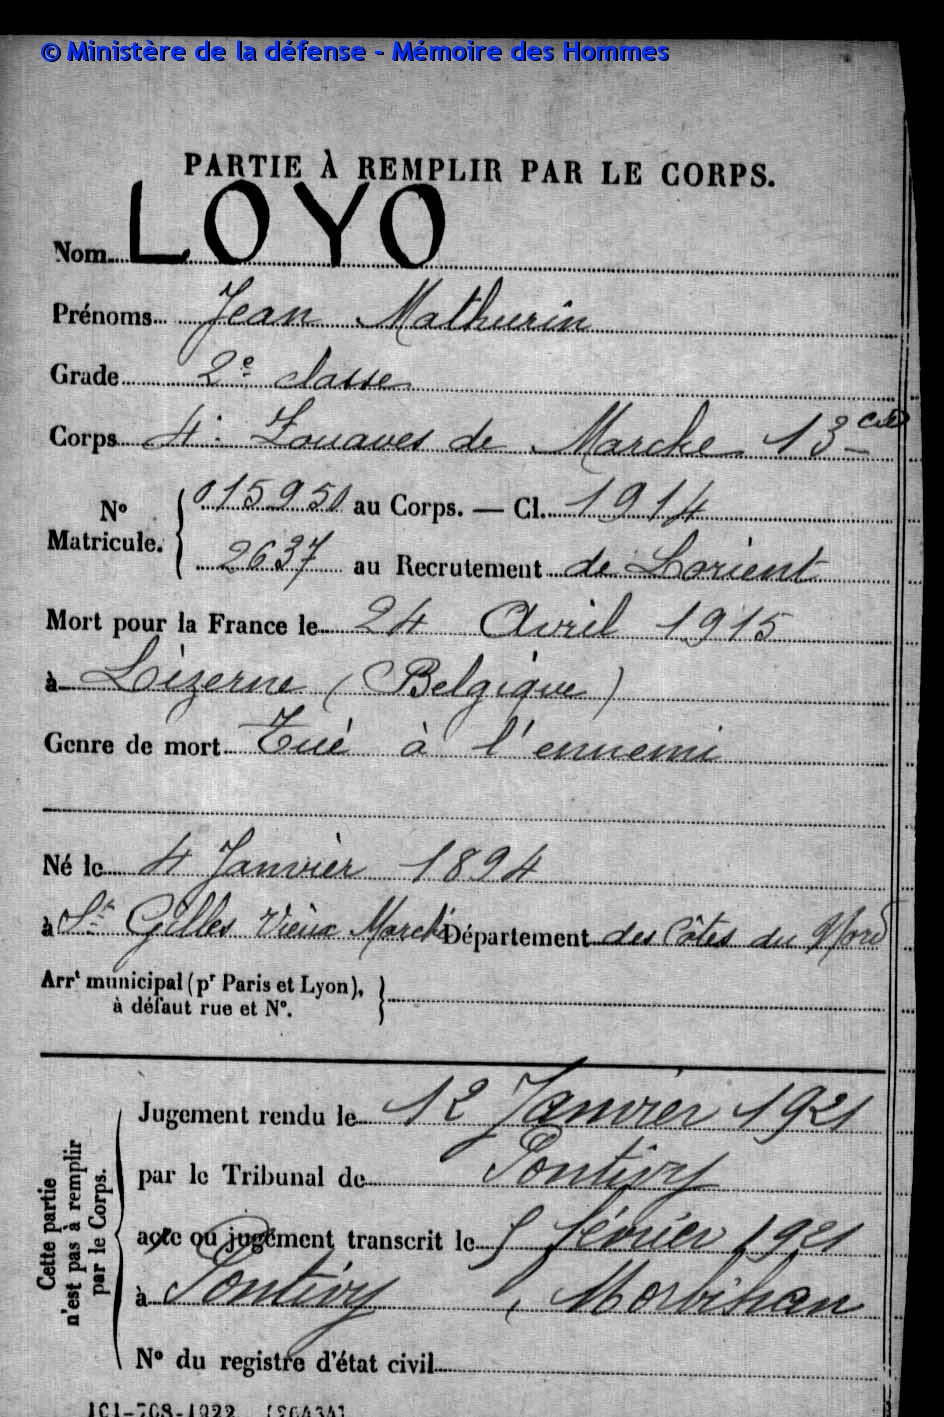 © Ministère de la défense - Mémoire des Hommes
PARTIE À REMPLIR PAR LE CORPS.
Nom LOYO
Prénoms Jean Mathurin
Grade 2e classe
Corps 4e Zouaves de Marche 13e Cie
No Matricule. { 015950 au Corps. — Cl. 1914
2637 au Recrutement de Lorient
Mort pour la France le 24 Avril 1915
à Lizerne (Belgique)
Genre de mort Tué à l'ennemi
Né le 4 Janvier 1894
à St Gilles Vieux Marché Département des Côtes du Nord
Arrt municipal (pr Paris et Lyon),
à défaut rue et No.
Cette partie n'est pas à remplir par le Corps.
Jugement rendu le 12 Janvier 1921
par le Tribunal de Pontivy
acte ou jugement transcrit le 5 février 1921
à Pontivy, Morbihan
No du registre d'état civil
101-708-1922. [26434]